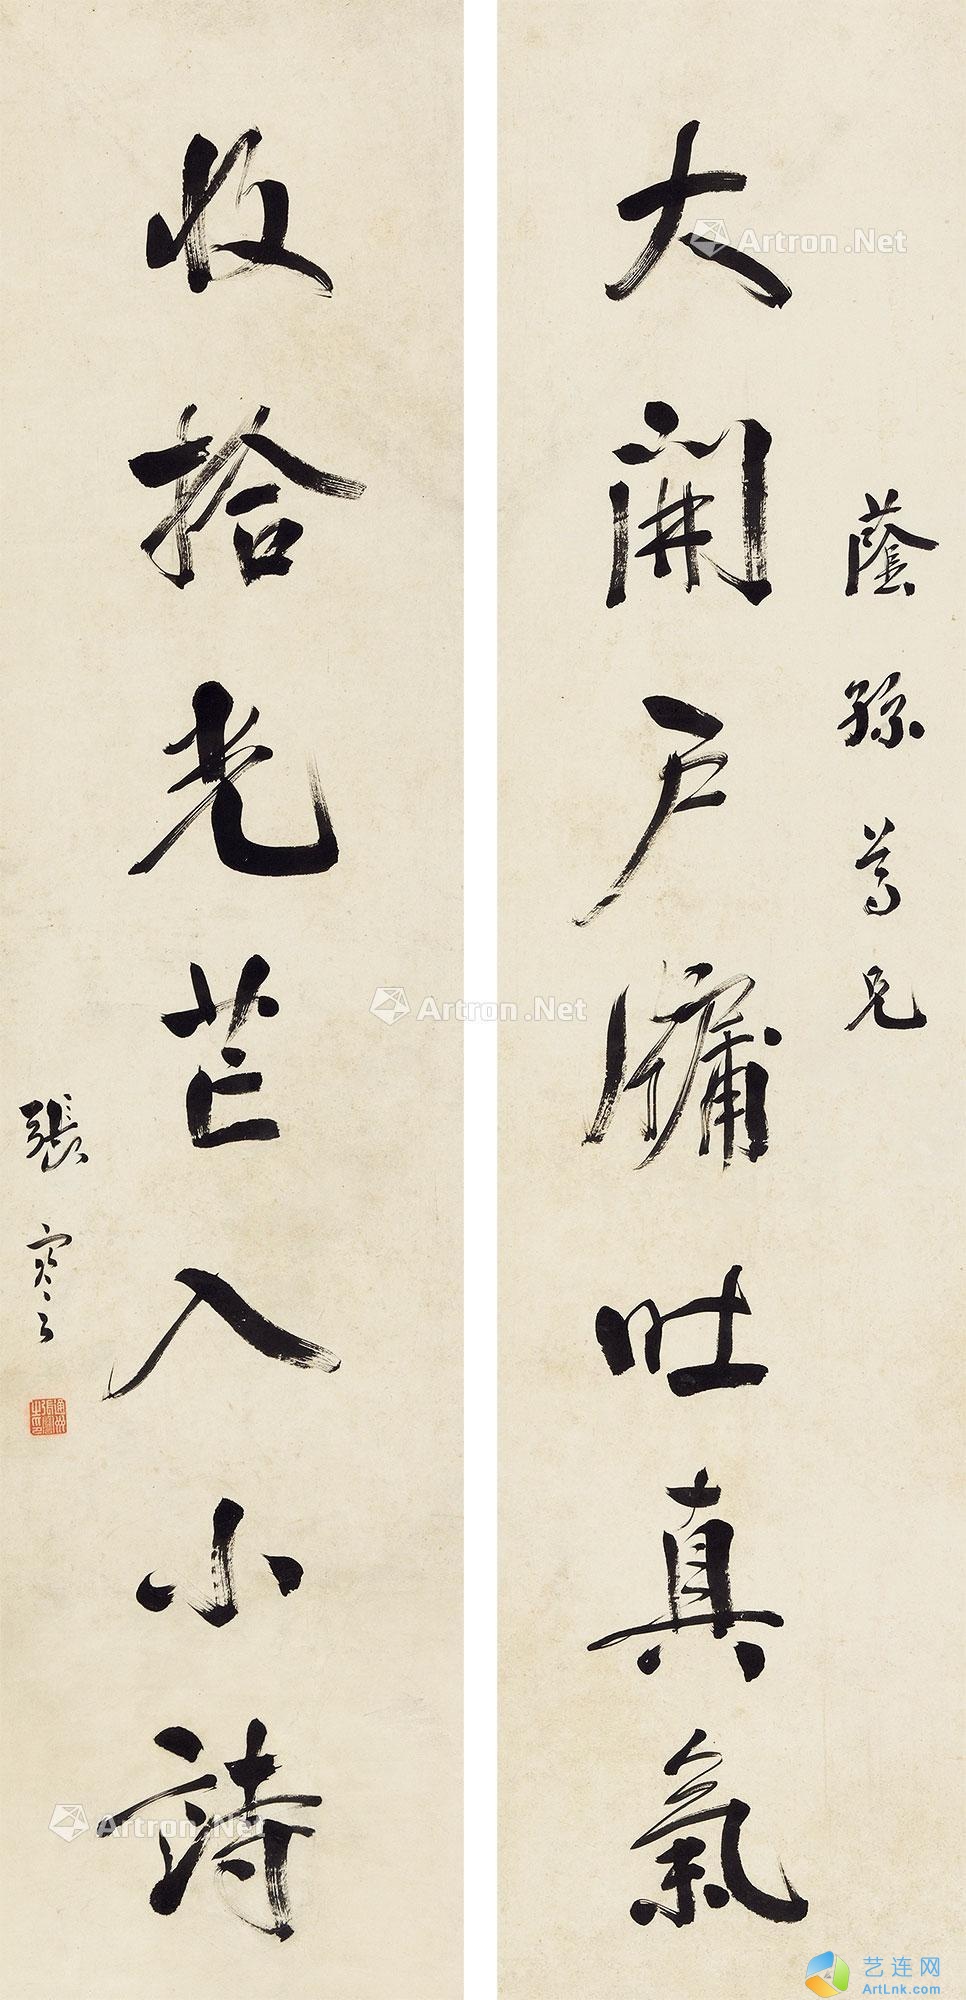 蔭孫尊兄
大開戶牖吐真氣
收拾光芒入小詩
張謇
Artron.Net
Artron.Net
Artron.Net
艺连网
ArtLnk.com